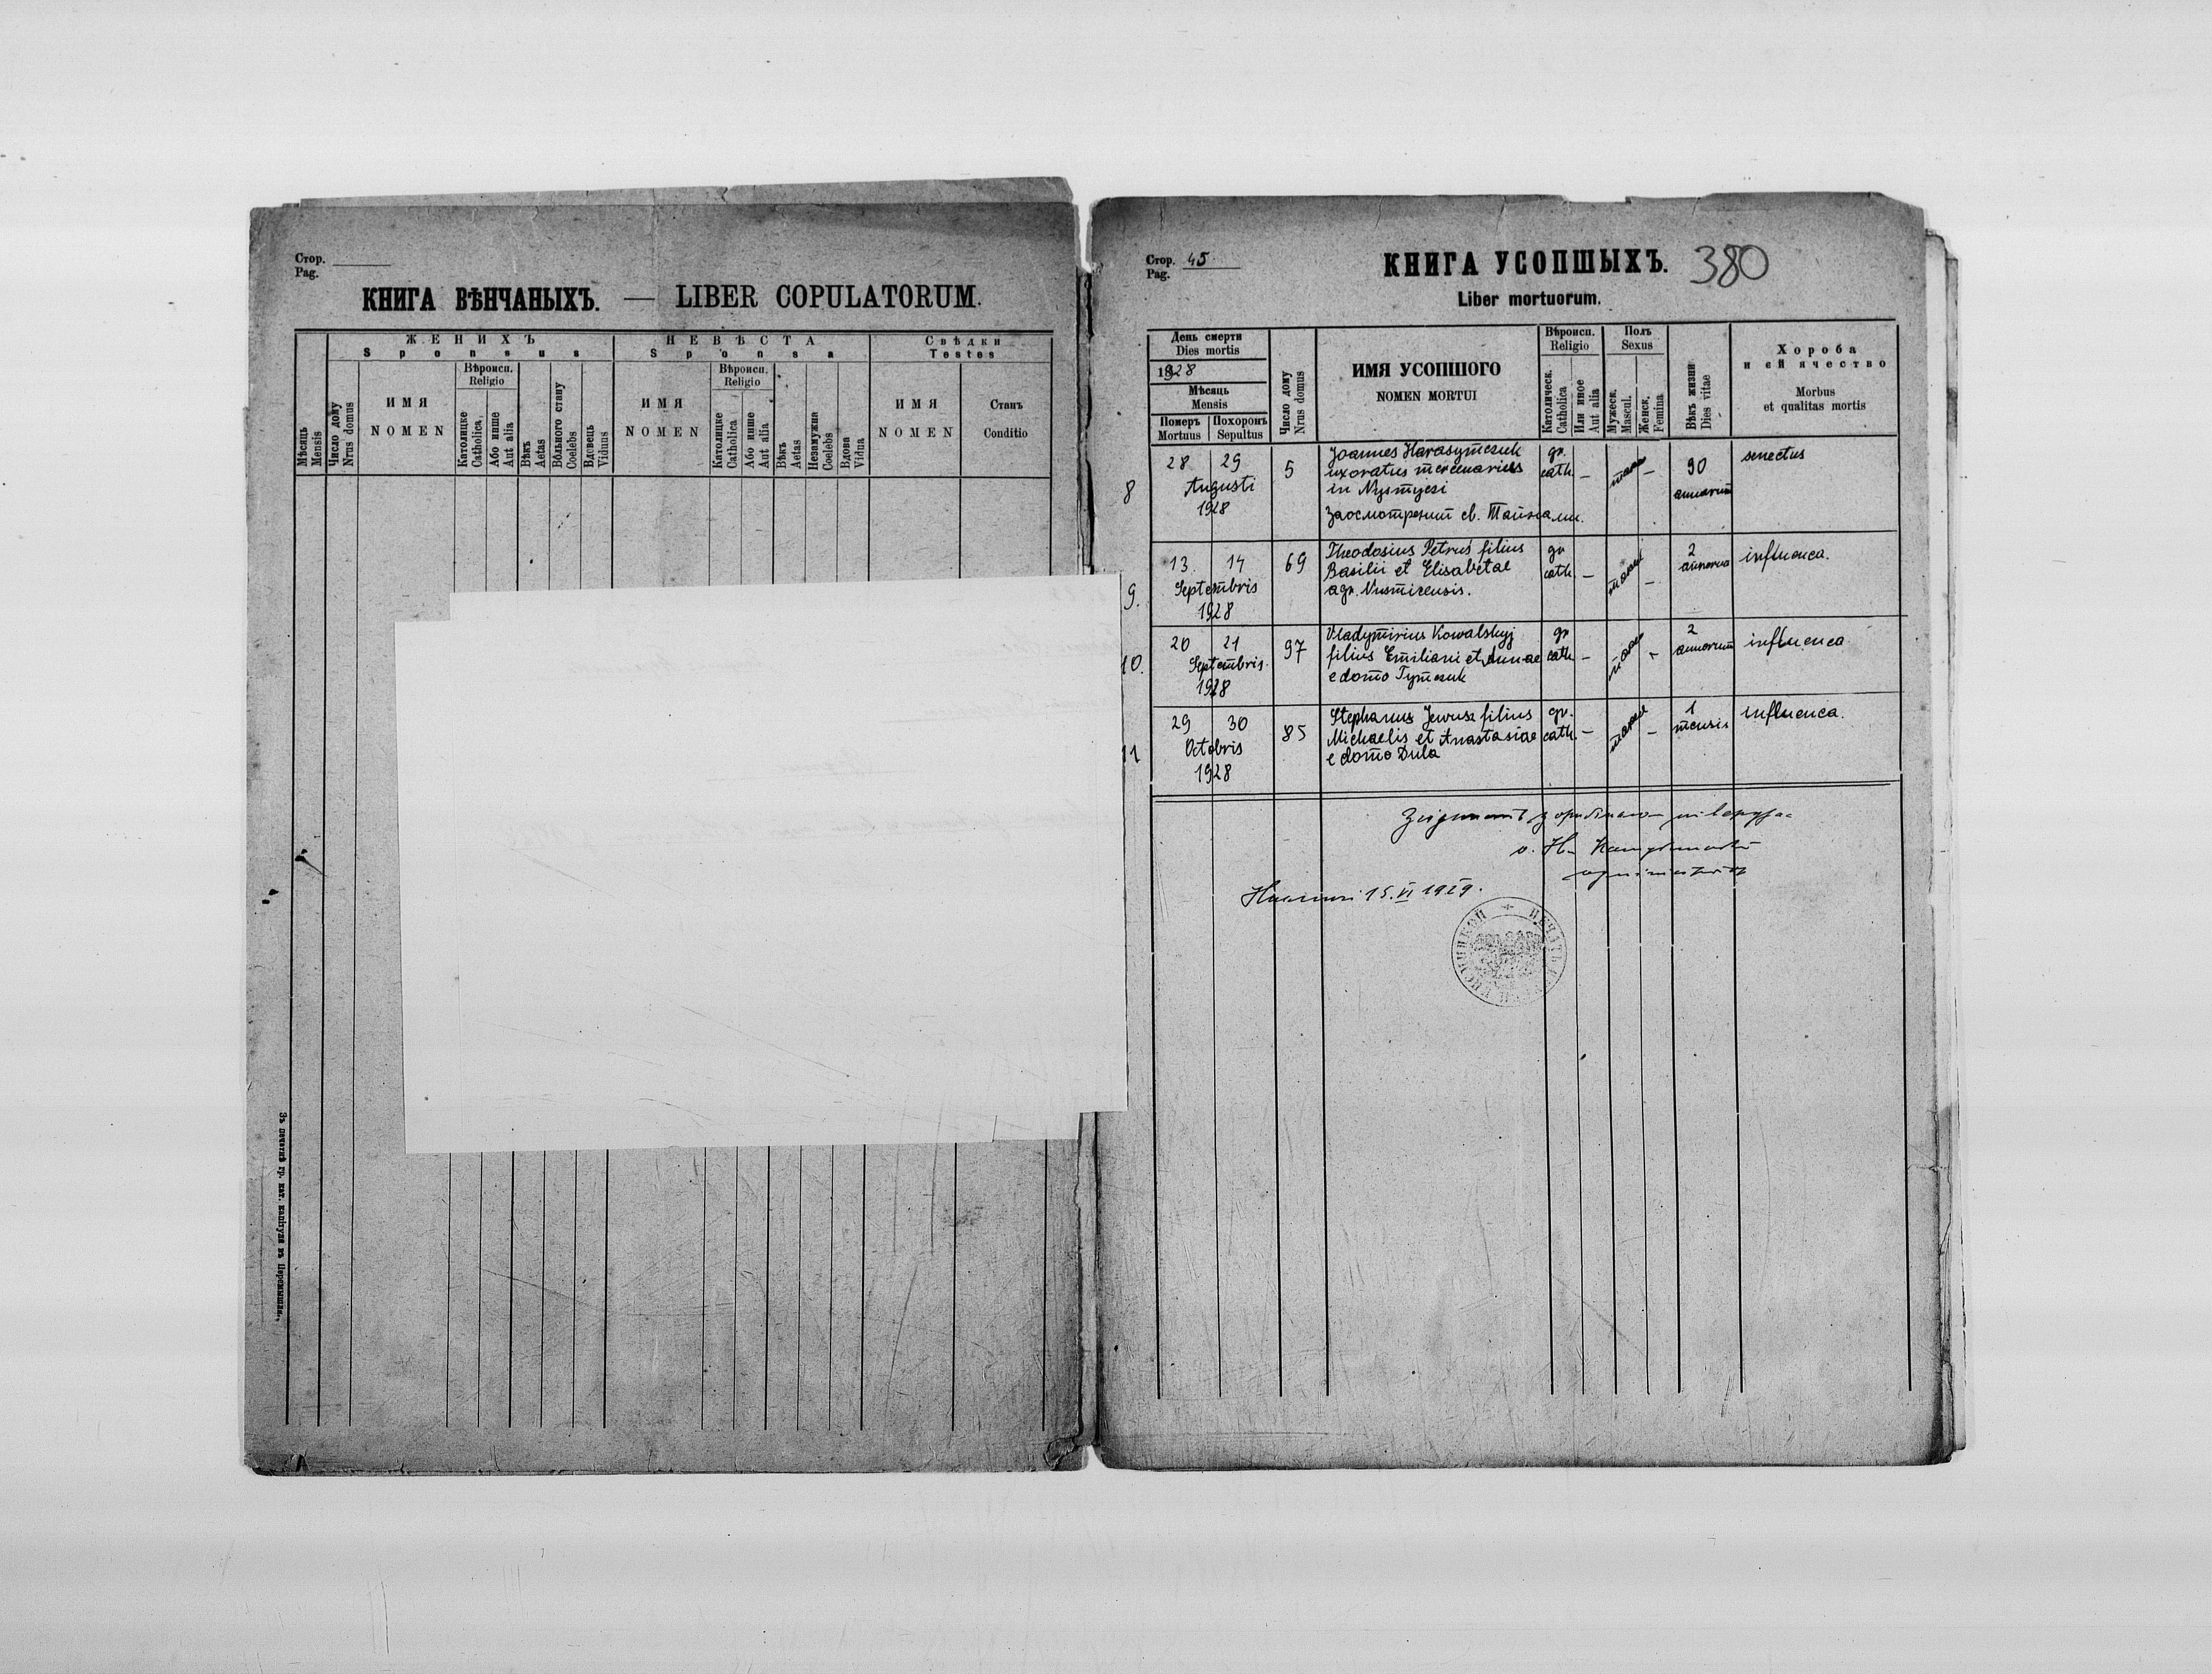 Стор. Pag.
КНИГА ВѢНЧАНЫХЪ. — LIBER COPULATORUM.
Мѣсяць
Mensis
Число дому
Nrus domus
ЖЕНИХЪ
Sponsus
ИМЯ
NOMEN
Вѣроисп.
Religio
Католицке
Catholica
Або инше
Aut alia
Вѣкъ
Aetas
Вôльного стану
Coelebs
Вдовець
Viduus
НЕВѢСТА
Sponsa
ИМЯ
NOMEN
Вѣроисп.
Religio
Католицке
Catholica
Або инше
Aut alia
Вѣкъ
Aetas
Незамужна
Coelebs
Вдова
Vidua
Свѣдки
Testes
ИМЯ
NOMEN
Станъ
Conditio
Зъ печатнѣ гр. кат. капітулы въ Перемышли.
Стор. Pag. 45
КНИГА УСОПШЫХЪ. 380
Liber mortuorum.
День смерти
Dies mortis
1928
Мѣсяць
Mensis
Померъ
Mortuus
Похоронъ
Sepultus
Число дому
Nrus domus
ИМЯ УСОПШОГО
NOMEN MORTUI
Вѣроисп.
Religio
Католическ.
Catholica
Или иное
Aut alia
Полъ
Sexus
Мужеск.
Mascul.
Женск.
Femina
Вѣкъ жизни
Dies vitae
Хороба
и еи ячество
Morbus
et qualitas mortis
8
28 29
Augusti
1928
5
Joannes Harasymczuk
uxoratus mercenarius
in Nysmyczi
Заосмотрений св. Тайнами.
gr.
cath. —
masc —
90
annorum
senectus
9.
13. 14
Septembris
1928
69
Theodosius Petrus filius
Basilii et Elisabetae
agr. Nusmicensis.
gr
cath. —
masc —
2
annorum
influenca.
10.
20 21
Septembris.
1928
97
Vladymirius Kowalskyj
filius Emiliani et Annae
e domo Tymczuk
gr
cath. —
masc —
2
annorum
influenca.
11
29 30
Octobris
1928
85
Stephanus Jewusz filius
Michaelis et Anastasiae
e domo Dula
gr.
cath. —
masc —
1
mensis
influenca.
о. Н.
15. VI 1929.